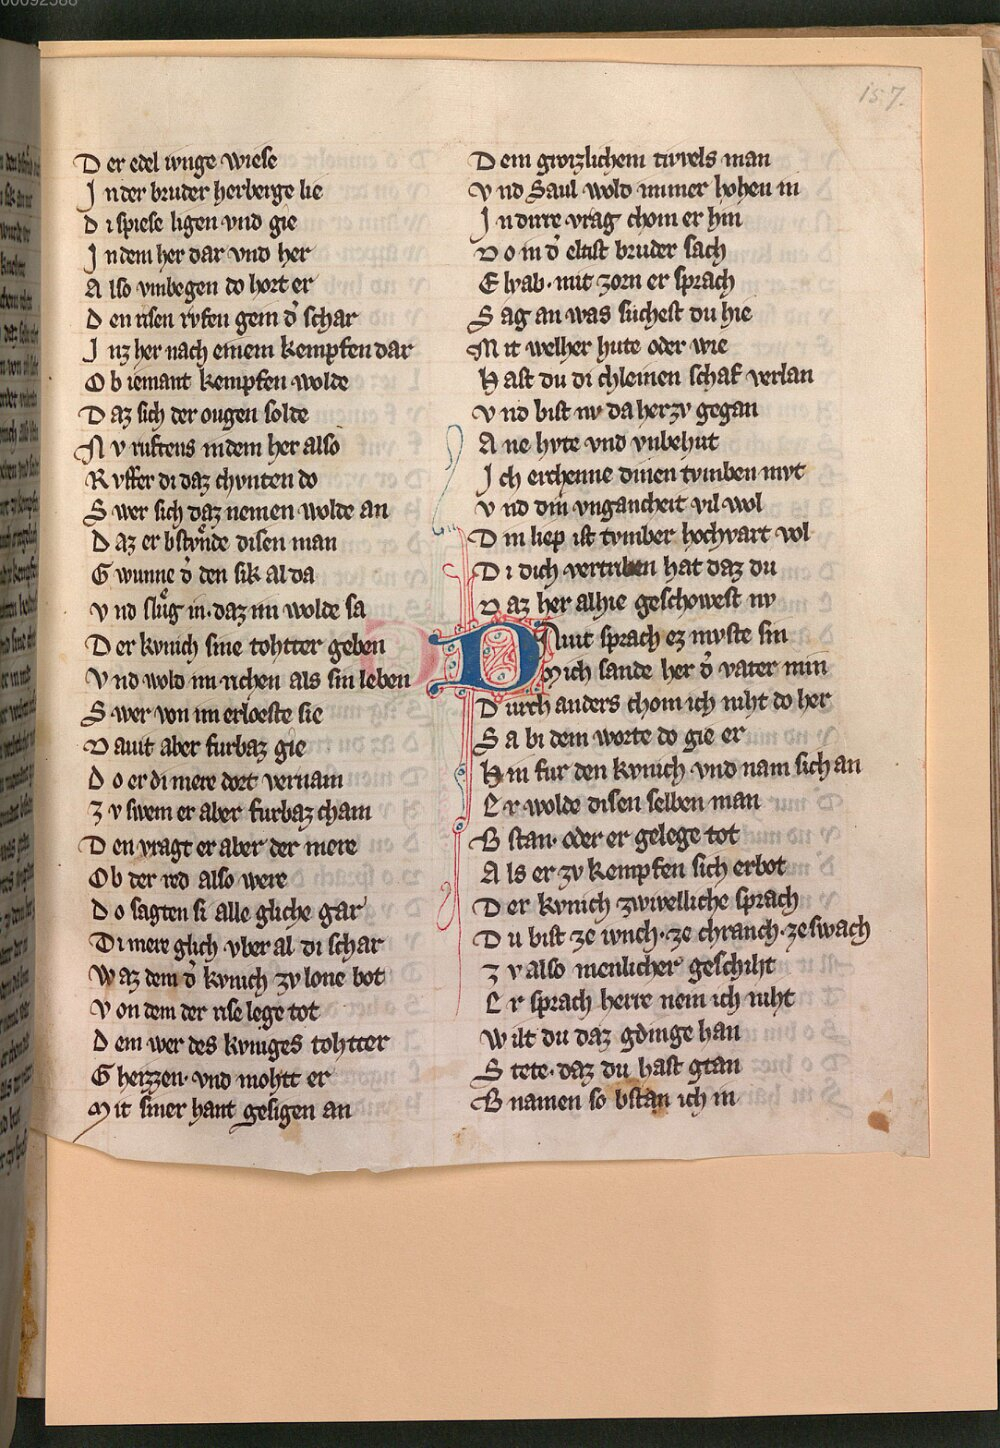 157.
Der edel iunge wiese
In der bruder herberge lie
Di spiese ligen vnd gie
In dem her dar vnd her
Also vmbegen do hort er
Den risen rvfen gem d̾ schar
Inz her nach einem kempfen dar
Ob iemant kempfen wolde
Daz sich der ougen solde
Nv ruftens in dem her also
Rvffer di daz chvnten do
Swer sich daz nemen wolde an
Daz er bstvͦnde disen man
Gwunne d̾ den sik al da
Vnd sluͤg in · daz im wolde sa
Der kvnich sine tohtter geben
Vnd wold im richen als sin leben
Swer von im erloeste sie
Dauit aber furbaz gie
Do er di mere dort vernam
Zv swem er aber furbaz cham
Den vragt er aber der mere
Ob der red also were
Do sagten si alle gliche gar
Di mere glich vber al di schar
Waz dem d̾ kvnich zv lone bot
Von dem der rise lege tot
Dem wer des kvniges tohtter
Gherzzen · vnd mohtt er
Mit siner hant gesigen an
Dem gwrzlichem tivvels man
Vnd Saul wold immer hohen in
In dirre vrag chom er hin
Do in d̾ eltist bruder sach
Elyab · mit zorn er sprach
Sag an was suchest du hie
Mit welher hute oder wie
Hast du di chleinen schaf verlan
Vnd bist nv da her zv gegan
Ane hvte vnd vnbehut
Ich erchenne dinen tvmben mvt
Vnd din vngancheit vil wol
Din liep ist tvmber hochvart vol
Di dich vertriben hat daz du
Daz her alhie geschowest nv
Dauit sprach ez mvste sin
Mich sande her d̾ vater min
Durch anders chom ich niht do her
Sa bi dem worte do gie er
Hin fur den kvnich vnd nam sich an
Er wolde disen selben man
Bstan · oder er gelege tot
Als er zv kempfen sich erbot
Der kvnich zwivelliche sprach
Du bist ze iunch · ze chranch · ze swach
Zv also menlicher geschiht
Er sprach herre nein ich niht
Wilt du daz gdinge han
Stete · daz du hast gtan
Bnamen so bstan ich in